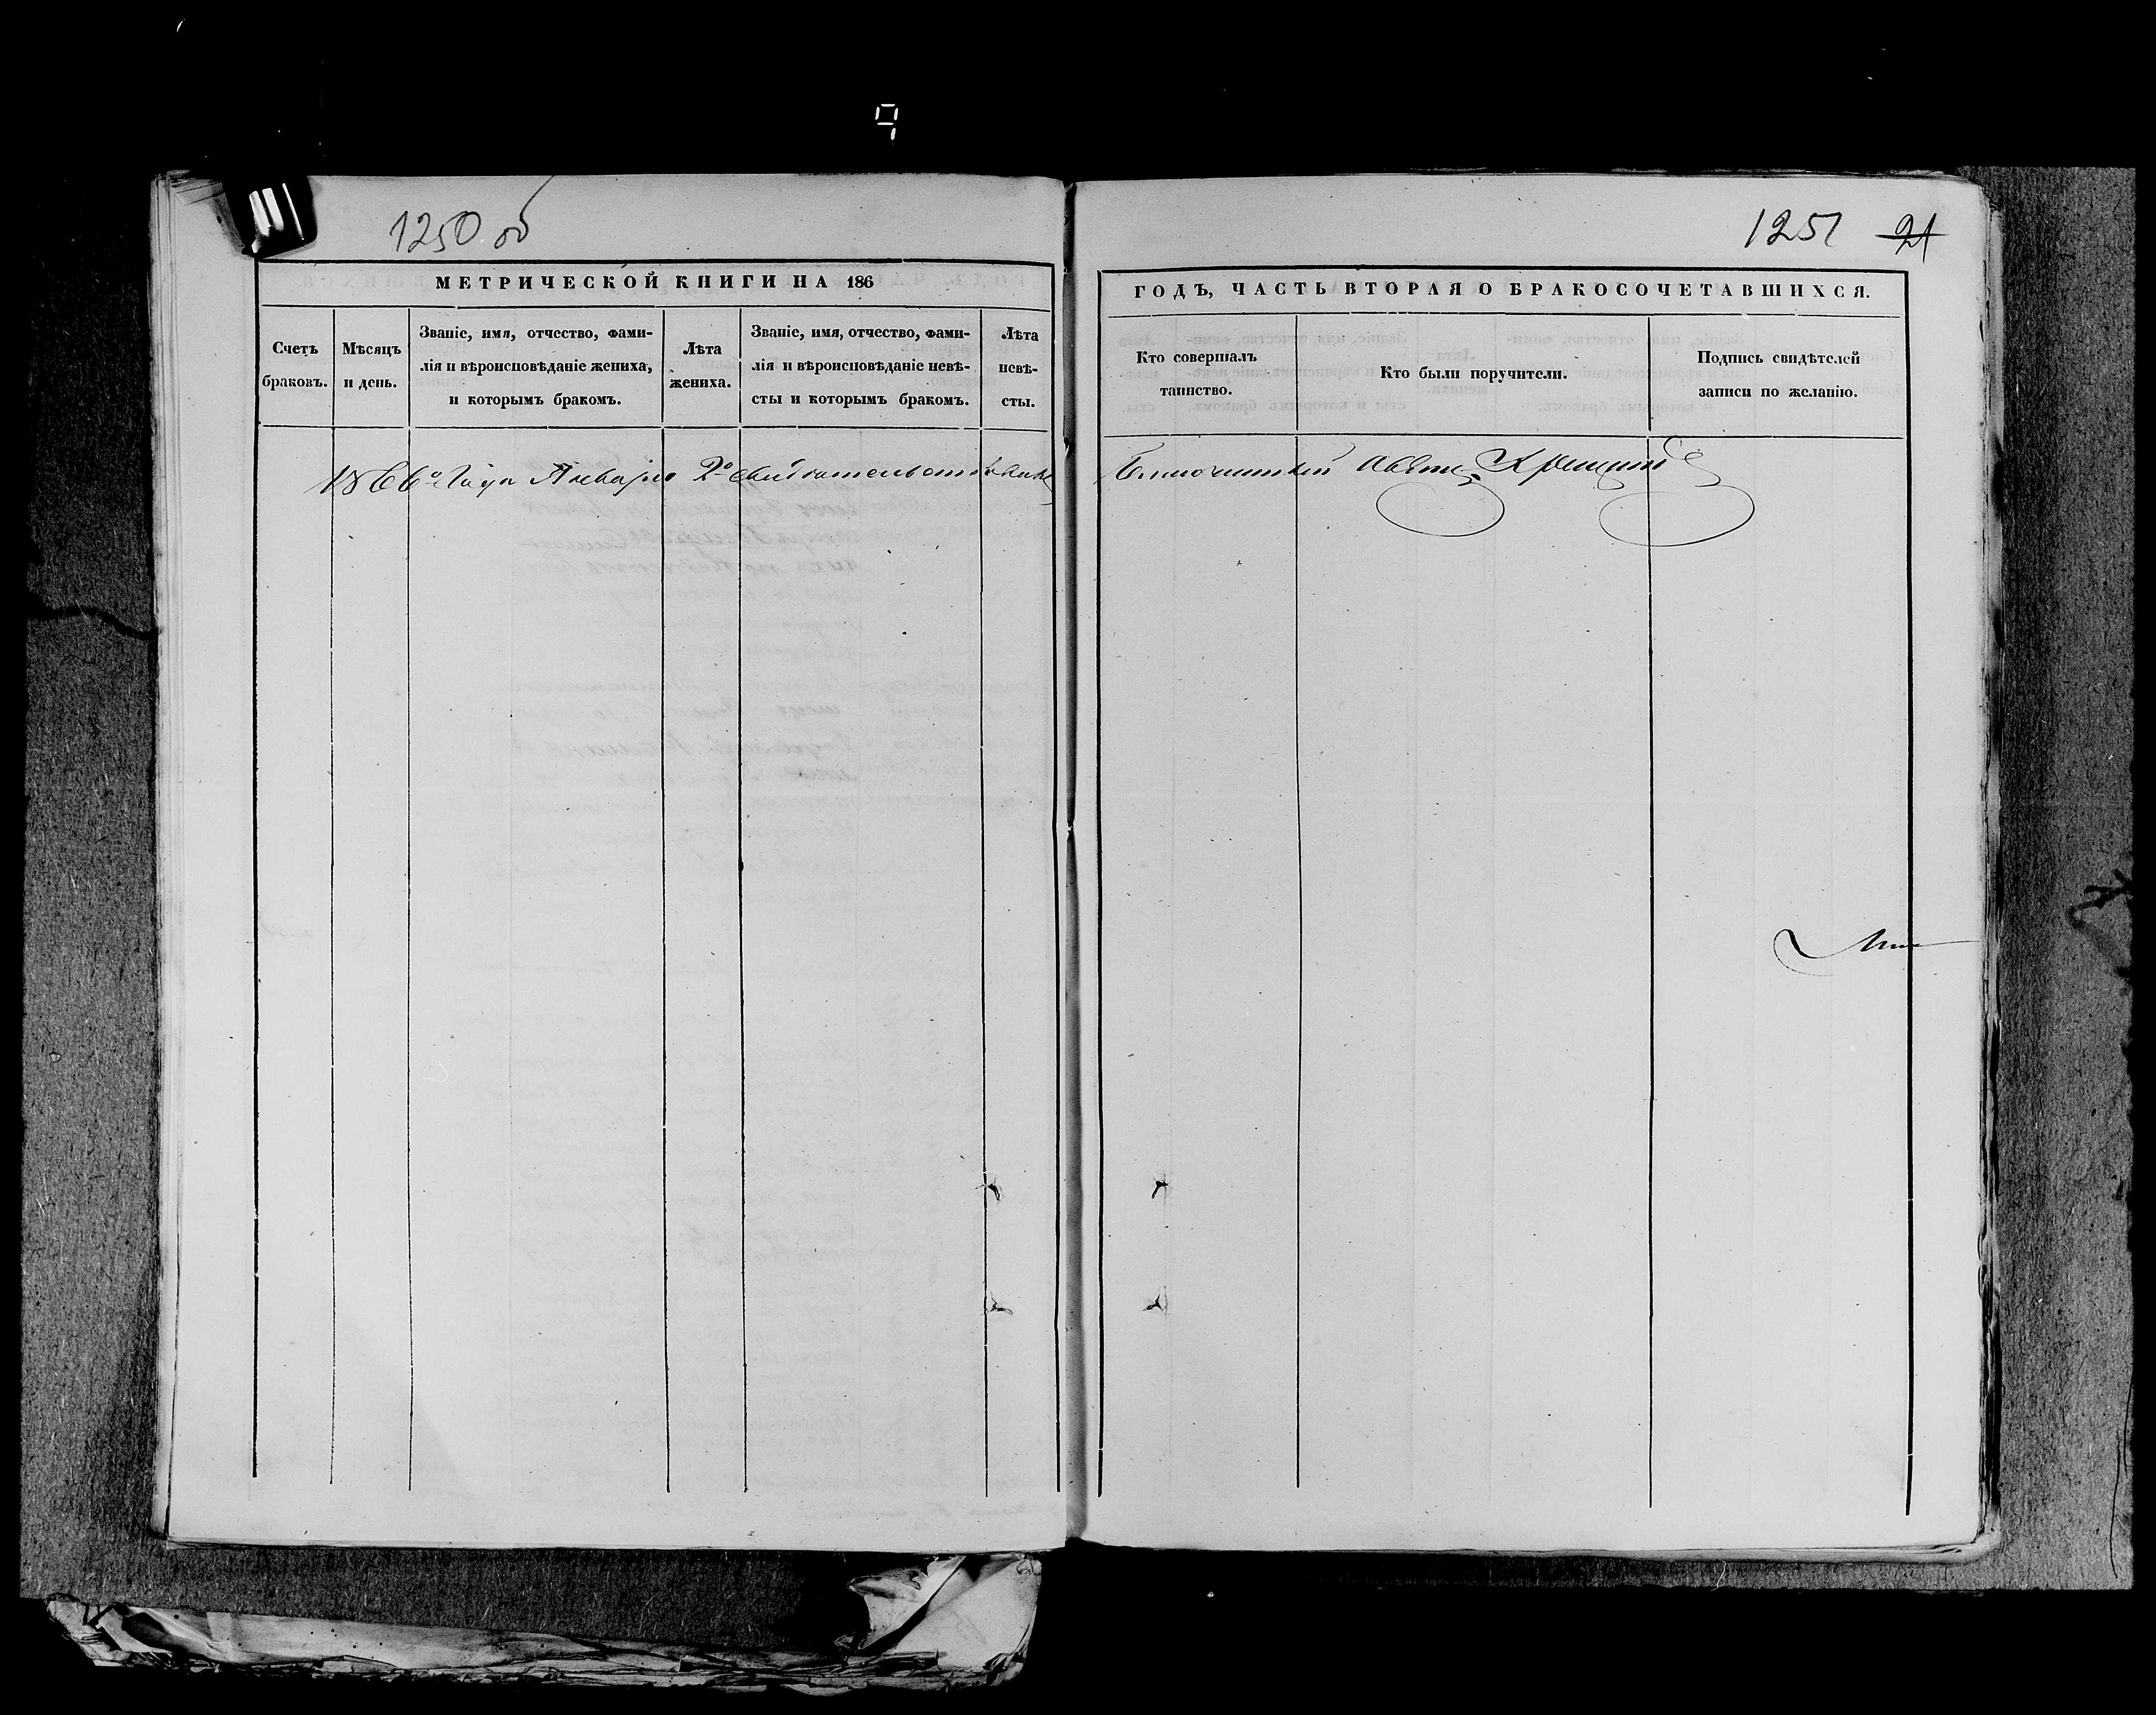 1250 об
1251 21
МЕТРИЧЕСКОЙ КНИГИ НА 186
ГОДЪ, ЧАСТЬ ВТОРАЯ О БРАКОСОЧЕТАВШИХСЯ.
Счетъ
браковъ.
Мѣсяцъ
и день.
Званіе, имя, отчество, фами-
лія и вѣроисповѣданіе жениха,
и которымъ бракомъ.
Лѣта
жениха.
Званіе, имя, отчество, фами-
лія и вѣроисповѣданіе невѣ-
сты и которымъ бракомъ.
Лѣта
невѣ-
сты.
Кто совершалъ
таинство.
Кто были поручители.
Подпись свидѣтелей
записи по желанію.
1866го Года Января 2го свидѣтельствовалъ
Благочинный